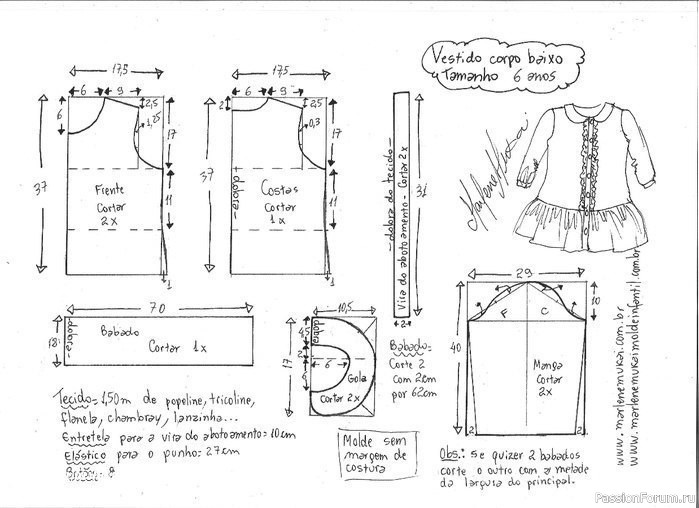 Vestido corpo baixo
Tamanho 6 anos
17,5
6
9
2,5
6
1,25
17
37
Frente
Cortar
2x
11
1
17,5
6
9
2
2,5
0,3
17
37
dobra
Costas
Cortar
1x
11
1
dobra do tecido
Vira do abotoamento - Cortar 2x
2
Marlene Mukai
29
10
F
C
40
Manga
Cortar
2x
2
2
www.marlenemukai.com.br
www.marlenemukaimoldeinfantil.com.br
70
18
dobra
Babado
Cortar 1x
10,5
dobra
4,5
17
6
Gola
Cortar 2x
Babado:
Corte 2
com 2cm
por 62cm
Tecido = 1,50m de popeline, tricoline,
flanela, chambray, lanzinha...
Entretela para a vira do abotoamento = 10cm
Elástico para o punho = 27cm
Molde sem
margem de
costura
Obs.: Se quizer 2 babados
corte o outro com a metade
da largura do principal.
PassionForum.ru